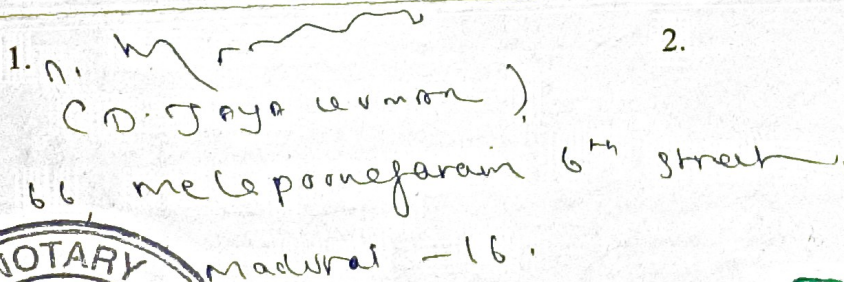 1. 2.
(D. Jaya kumar)
66, melaponnagaram 6th street
NOTARY madurai - 16.